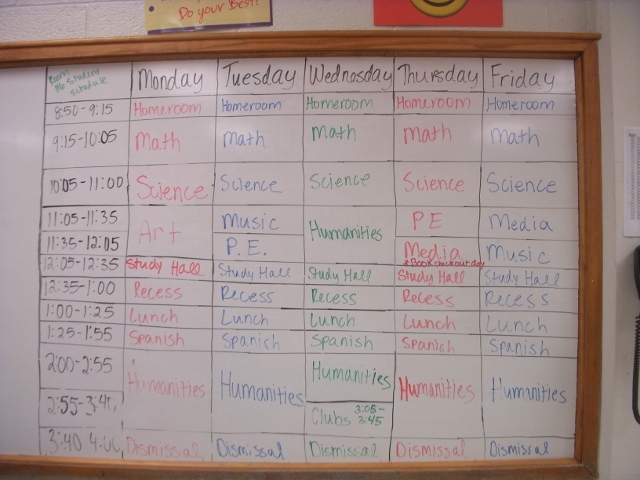 Do your Best!
Room
116 Student
Schedule
Monday Tuesday Wednesday Thursday Friday
8:50-9:15 Homeroom Homeroom Homeroom Homeroom Homeroom
9:15-10:05 Math Math Math Math Math
10:05-11:00 Science Science Science Science Science
11:05-11:35 Art Music Humanities PE Media
11:35-12:05 P.E. Media Music
Book checkout day
12:05-12:35 Study Hall Study Hall Study Hall Study Hall Study Hall
12:35-1:00 Recess Recess Recess Recess Recess
1:00-1:25 Lunch Lunch Lunch Lunch Lunch
1:25-1:55 Spanish Spanish Spanish Spanish Spanish
2:00-2:55 Humanities Humanities Humanities Humanities Humanities
2:55-3:40 Clubs 3:05-
3:45
3:40 4:00 Dismissal Dismissal Dismissal Dismissal Dismissal